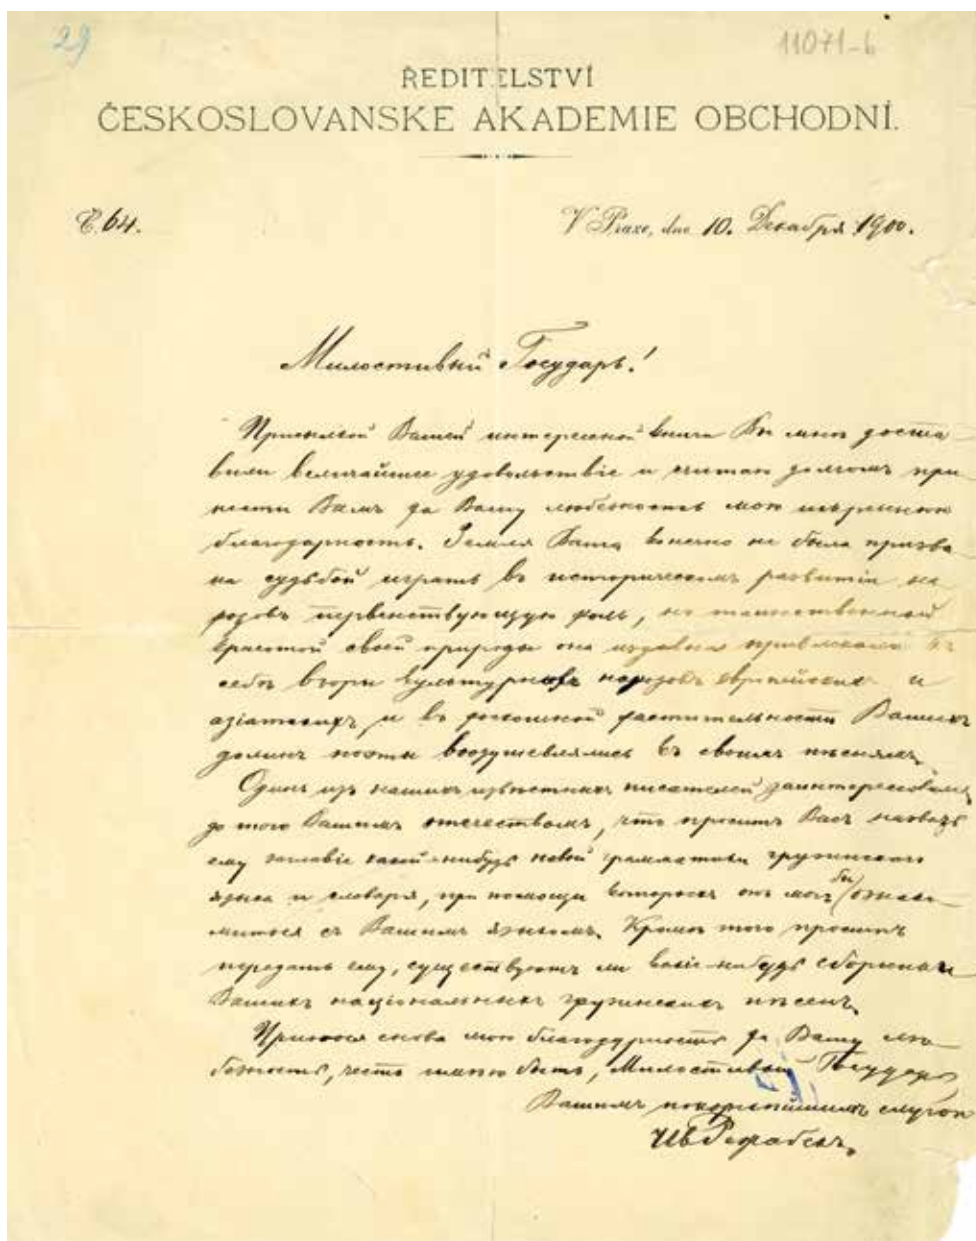 29
11071-b
ŘEDITELSTVÍ
ČESKOSLOVANSKE AKADEMIE OBCHODNÍ.
Č. 64.
V Praze, dne 10. Декабря 1900.
Милостивый Государь!
Присылкой Вашей интересной книги Вы мнѣ доста
вили величайшее удовольствіе и считаю долгомъ при
нести Вамъ за Вашу любезность мою искреннюю
благодарность. Земля Ваша конечно не была призва
на судьбой играть въ историческомъ развитіи на
родовъ первенствующую роль, но таинственной
красотой своей природы она издавна привлекала къ
себѣ взоры культурныхъ народовъ европейскихъ и
азіатскихъ и въ роскошной растительности Вашихъ
долинъ поэты воодушевлялись къ своимъ пѣснямъ.
Одинъ изъ нашихъ извѣстныхъ писателей заинтересовался
до того Вашимъ отечествомъ, что проситъ Васъ назвать
ему заглавіе какой-нибудь новой грамматики грузинскаго
языка и словаря, при помощи которыхъ онъ могъ бы ознако
миться съ Вашимъ языкомъ. Кромѣ того проситъ
передать ему, существуютъ ли какіе-нибудь сборники
Вашихъ національныхъ грузинскихъ пѣсень.
Принося снова мою благодарность за Вашу лю
безность, честь имѣю быть, Милостивый Государь,
Вашимъ покорнѣйшимъ слугою
Ив